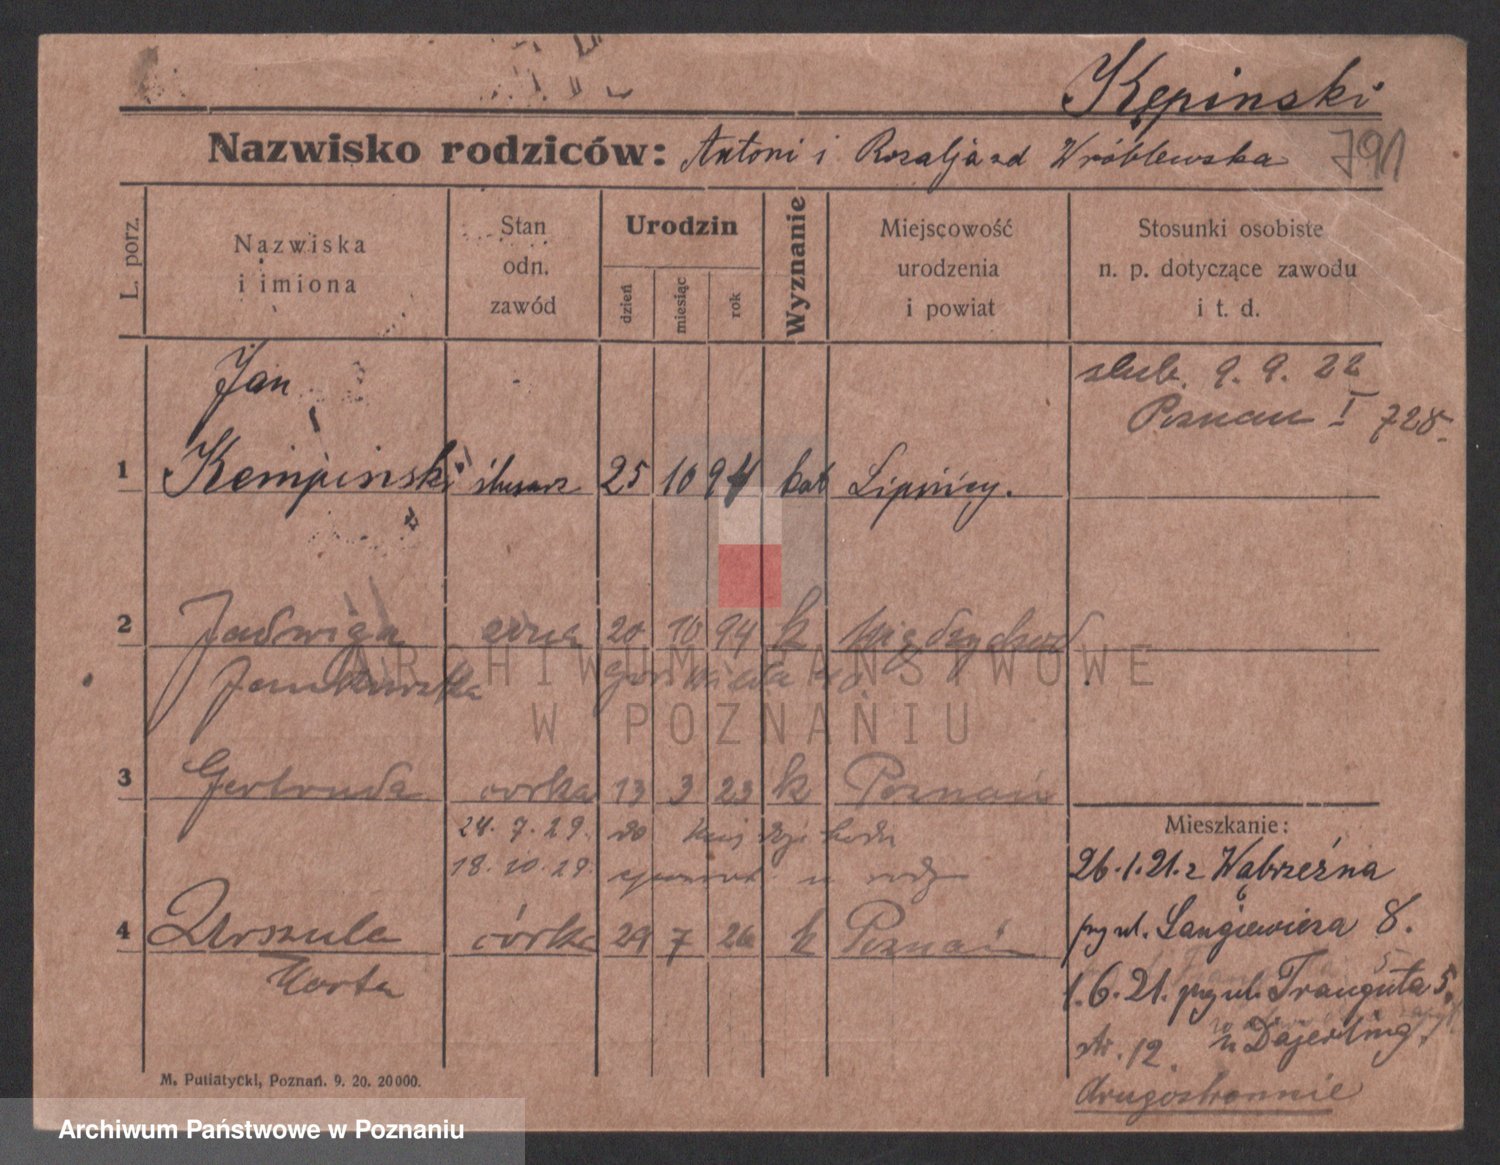 Kępinski
Nazwisko rodziców: Antoni i Rozalja zd Wróblewska
791
L. porz.
Nazwiska
i imiona
Stan
odn.
zawód
Urodzin
dzień
miesiąc
rok
Wyznanie
Miejscowość
urodzenia
i powiat
Stosunki osobiste
n. p. dotyczące zawodu
i t. d.
Jan
ślub. 9. 9. 22
Poznań I 728.
1 Kempinski ślusarz 25 10 94 kat
2 Jadwiga 20 10 94 k Międzychod
3 Gertruda córka 13 3 23 k Poznań
Mieszkanie:
24. 7. 29. do
18. 10. 29.
26.1.21. z Wąbrzeźna
4 Urszula córka 29 7 26 k Poznań
przy ul. Langiewicza 8.
Marta
1.6.21. przy ul. Trauguta 5.
str. 12. u
drugostronnie
M. Putiatycki, Poznań. 9. 20. 20000.
ARCHIWUM PAŃSTWOWE
W POZNANIU
Archiwum Państwowe w Poznaniu